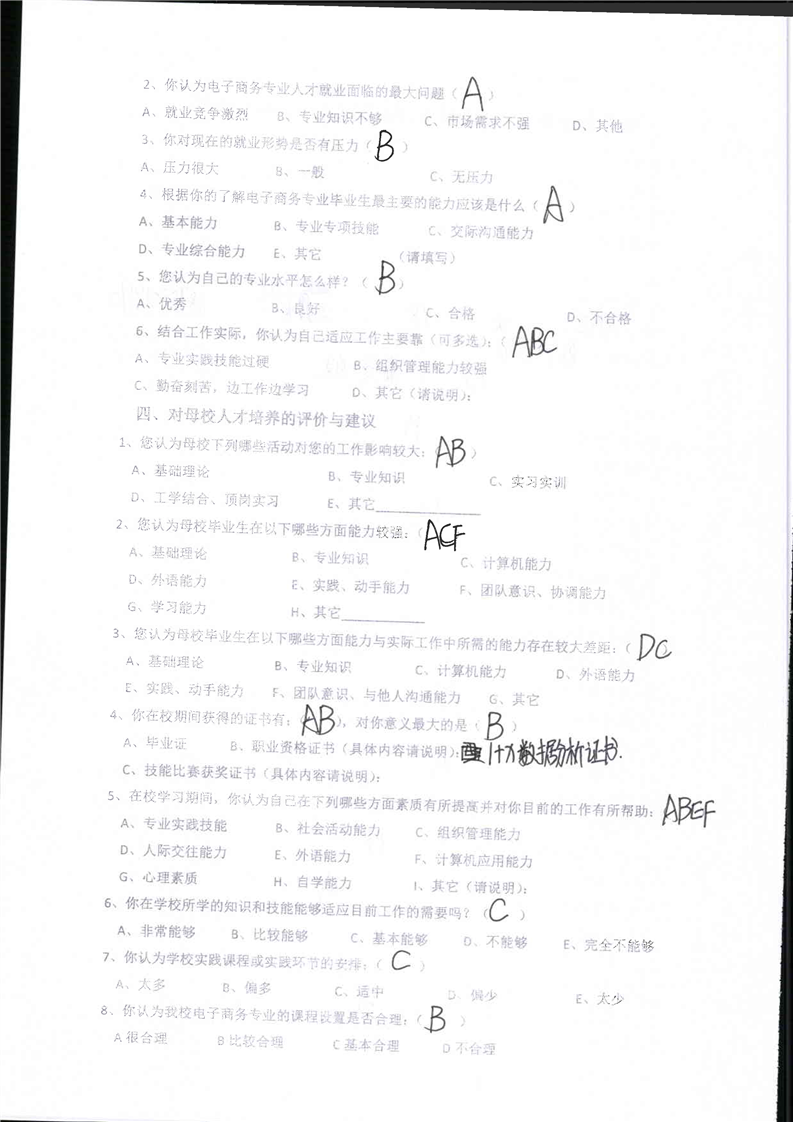 2、你认为电子商务专业人才就业面临的最大问题（ A ）
A、就业竞争激烈 B、专业知识不够 C、市场需求不强 D、其他
3、你对现在的就业形势是否有压力（ B ）
A、压力很大 B、一般 C、无压力
4、根据你的了解电子商务专业毕业生最主要的能力应该是什么（ A ）
A、基本能力 B、专业专项技能 C、交际沟通能力
D、专业综合能力 E、其它 （请填写）
5、您认为自己的专业水平怎么样？（ B ）
A、优秀 B、良好 C、合格 D、不合格
6、结合工作实际，你认为自己适应工作主要靠（可多选）：（ ABC
A、专业实践技能过硬 B、组织管理能力较强
C、勤奋刻苦，边工作边学习 D、其它（请说明）：
四、对母校人才培养的评价与建议
1、您认为母校下列哪些活动对您的工作影响较大：（ AB ）
A、基础理论 B、专业知识 C、实习实训
D、工学结合、顶岗实习 E、其它________________
2、您认为母校毕业生在以下哪些方面能力较强：（ ACF
A、基础理论 B、专业知识 C、计算机能力
D、外语能力 E、实践、动手能力 F、团队意识、协调能力
G、学习能力 H、其它____________
3、您认为母校毕业生在以下哪些方面能力与实际工作中所需的能力存在较大差距：（ DC
A、基础理论 B、专业知识 C、计算机能力 D、外语能力
E、实践、动手能力 F、团队意识、与他人沟通能力 G、其它
4、你在校期间获得的证书有：（ AB ），对你意义最大的是（ B ）
A、毕业证 B、职业资格证书（具体内容请说明）： 1+X数据分析证书.
C、技能比赛获奖证书（具体内容请说明）：
5、在校学习期间，你认为自己在下列哪些方面素质有所提高并对你目前的工作有所帮助： ABEF
A、专业实践技能 B、社会活动能力 C、组织管理能力
D、人际交往能力 E、外语能力 F、计算机应用能力
G、心理素质 H、自学能力 I、其它（请说明）：
6、你在学校所学的知识和技能能够适应目前工作的需要吗？（ C ）
A、非常能够 B、比较能够 C、基本能够 D、不能够 E、完全不能够
7、你认为学校实践课程或实践环节的安排：（ C ）
A、太多 B、偏多 C、适中 D、偏少 E、太少
8、你认为我校电子商务专业的课程设置是否合理：（ B ）
A 很合理 B 比较合理 C 基本合理 D 不合理